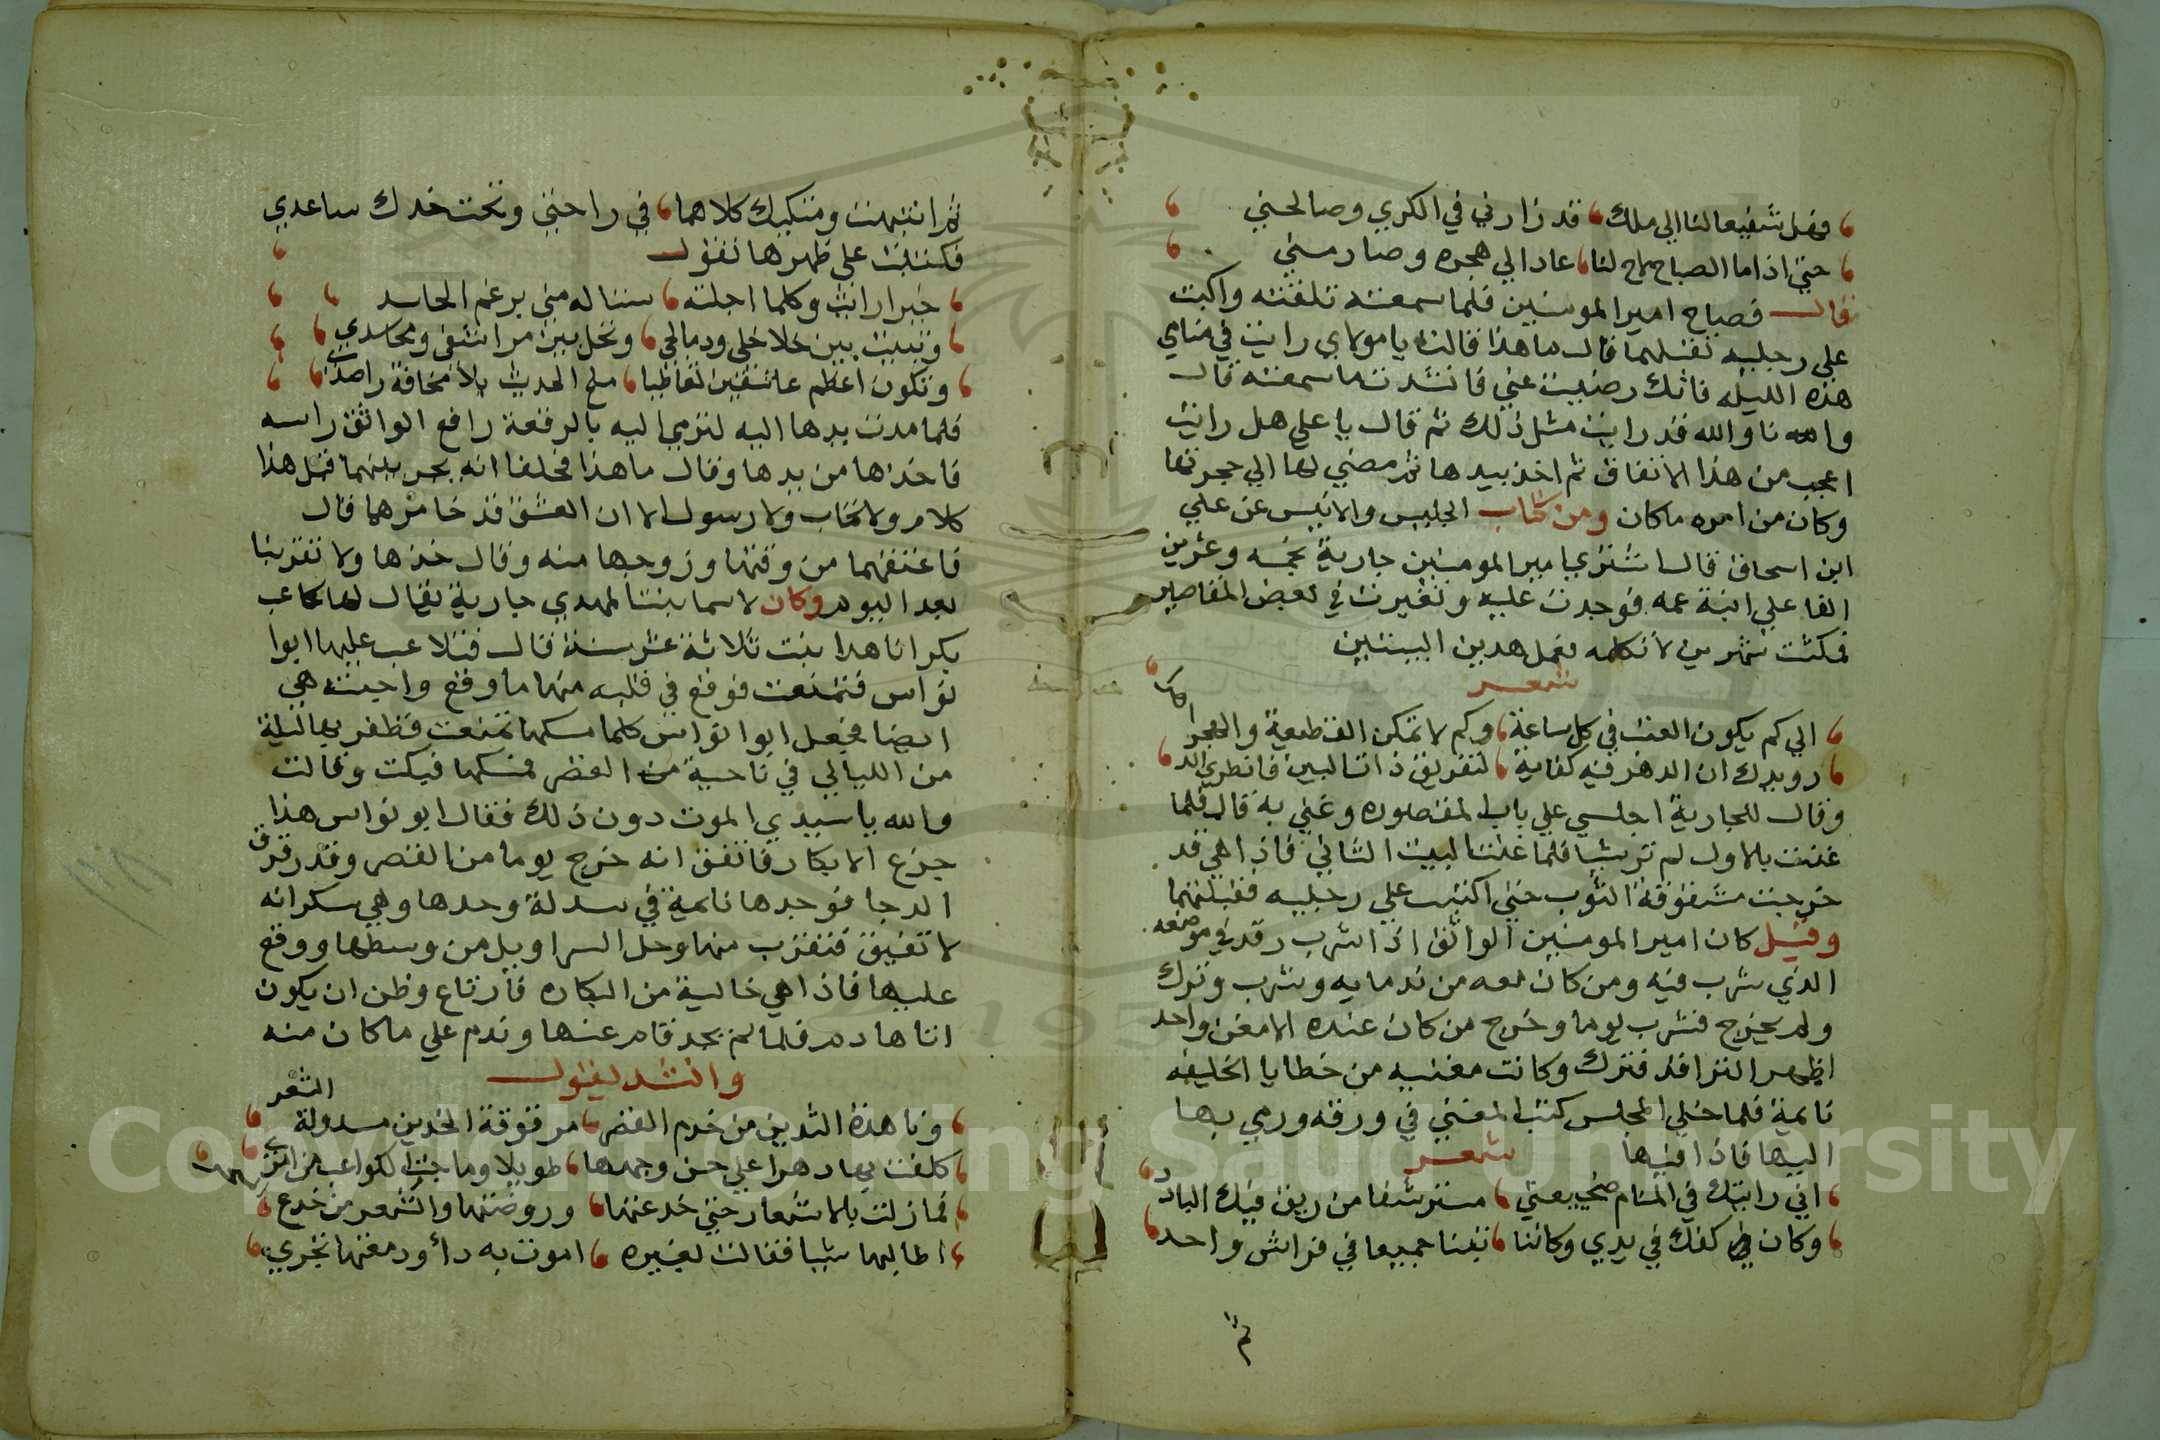 فهل شفيعا لنا الي ملك قد زارني في الكري وصالحني
حتي اذا ما الصباح لاح لنا عاد الي هجره وصارمني
قال فصاح امير المومنين فلما سمعته تلقته واكبت
علي رجليه تقبلهما قال ما هذا قالت يا مولاي رايت في منامي
هذه الليله فانك رضيت عني فانشدت ما سمعته قال
والله نا والله قد رايت مثل ذلك ثم قال يا علي هل رايت
اعجب من هذا الاتفاق ثم اخذ بيدها ثم مضي لها الي حجرتها
وكان من امره ما كان ومن كتاب الجليس والانيس عن علي
ابن اسحاق قال اشتري امير المومنين جارية بخمسه وعشرين
الفا علي ابنة عمه فوجدت عليه وتغيرت في بعض المقاصير
فمكثت شهرين لا تكلمه فعمل هدين البيتين
شعر
الي كم يكون العتب في كل ساعة وكم لا تمكن القطيعة والهجرا
رويدك ان الدهر فيه كفاية لتفريق ذات البين فانظري الد
وقال للجارية اجلسي علي باب المقصوره وغني به قال فلما
غنت بالاول لم تر شيا فلما غنت البيت الثاني فاذا هي قد
خرجت مشقوقة الثوب حتي اكبت علي رجليه فقبلتهما
وقيل كان امير المومنين الواثق اذا شرب رقد في موضعه
الذي شرب فيه ومن كان معه من ندمايه وشرب وترك
ولم يخرج فشرب يوما وخرج من كان عنده الا مغن واحد
اظهر التراقد فترك وكانت مغنيه من خطايا الخليفه
نايمة فلما خلي المجلس كتب المغني في ورقه ورمي بها
اليها فاذا فيها شعر
اني رايتك في المنام ضجيعتي مسترشفا من ريق فيك البارد
وكان كفك في يدي وكاننا بتنا جميعا في فراش واحد
ثم
ثم انتبهت ومنكبيك كلاهما في راحتي وتحت خدك ساعدي
فكتبت علي ظهرها تقول
خيرا رايت وكلما املته ستناله مني برغم الحاسد
وتبيت بين خلاخلي ودمالجي وتحل بين مراشفي ومجاسدي
ونكون اعظم عاشقين تعاطيا ملح الحديث بلا مخافة راصد
فلما مدت يدها اليه لترمي اليه بالرقعة رافع الواثق راسه
فاخذها من يدها وقال ما هذا فحلفا انه لم يجر بينهما قبل هذا
كلام ولا كتاب ولا رسول الا ان العشق قد خامرهما قال
فاعتقهما من وقتها وزوجها منه وقال خذها ولا تقربنا
بعد اليوم وكان لاسما بنت المهدي جارية يقال لها كاعب
بكرا ناهدا بنت ثلاثة عشر سنة قال فتلاعب عليها ابوا
نواس فتمنعت فوقع في قلبه منها ما وقع واحبته هي
ايضا فجعل ابوا نواس كلما مسكها تمنعت فظفر بها ليلة
من الليالي في ناحية من القصر فمسكها فبكت وقالت
والله يا سيدي الموت دون ذلك فقال ابو نواس هذا
جزع الابكار فاتفق انه خرج يوما من القصر وقد رقرق
الدجا فوجدها نايمة في سدلة وحدها وهي سكرانه
لا تفيق فتقرب منها وحل السراويل من وسطها ووقع
عليها فاذا هي خالية من البكاره فارتاع وظن ان يكون
اتاها دم فلما لم يجد قام عنها وندم علي ما كان منه
وانشد يقول
وناهدة الثديين من خدم القصر مرقوقة الخدين مسدولة الشعر
كلفت بها دهرا علي حسن وجهها طويلا وما حب الكواعب من امري
فما زلت بالاشعار حتي خدعتها وروضتها والشعر من خدع
اطالبها شيا فقالت لغيره اموت به دأ ودمعتها تجري